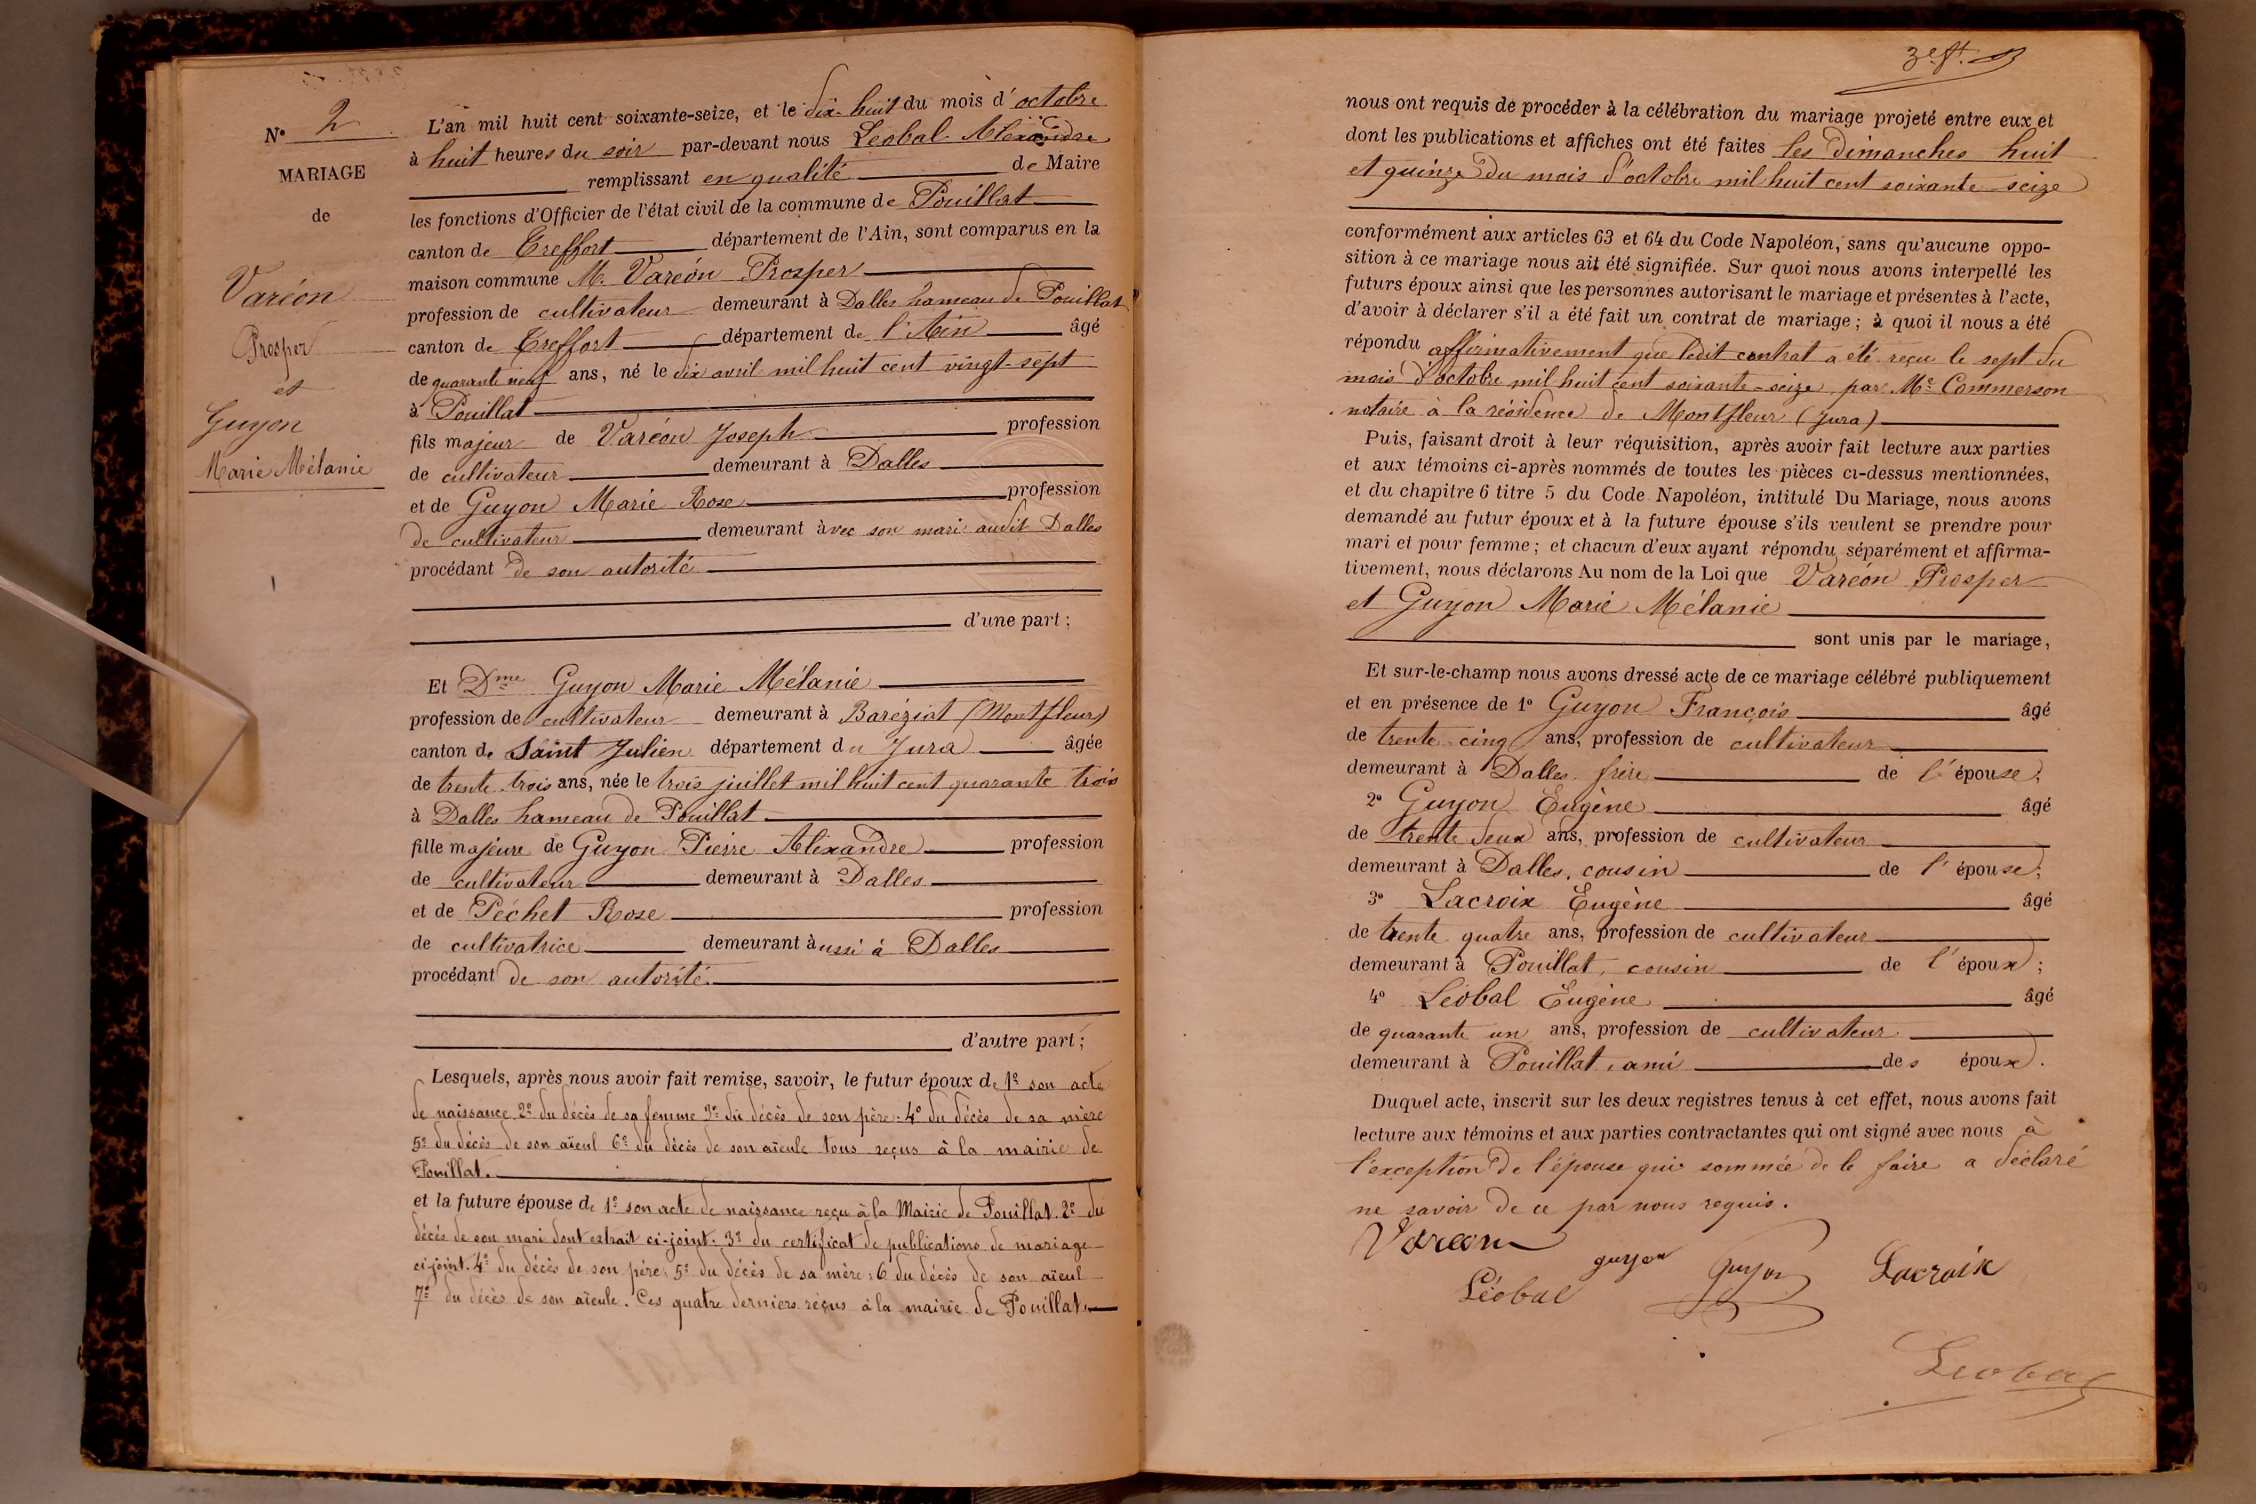 N° 2
MARIAGE
de
Varéon
Prosper
et
Guyon
Marie Mélanie
L'an mil huit cent soixante-seize, et le dix-huit du mois d'octobre
à huit heures du soir par-devant nous Léobal Alexandre
remplissant en qualité de Maire
les fonctions d'Officier de l'état civil de la commune de Pouillat
canton de Treffort département de l'Ain, sont comparus en la
maison commune M. Varéon Prosper
profession de cultivateur demeurant à Dalles hameau de Pouillat
canton de Treffort département de l'Ain âgé
de quarante neuf ans, né le dix avril mil huit cent vingt-sept
à Pouillat
fils majeur de Varéon Joseph profession
de cultivateur demeurant à Dalles
et de Guyon Marie Rose profession
de cultivateur demeurant avec son mari audit Dalles
procédant de son autorité
d'une part ;
Et Dme Guyon Marie Mélanie
profession de cultivateur demeurant à Baréziat (Montfleur)
canton de Saint Julien département du Jura âgée
de trente trois ans, née le trois juillet mil huit cent quarante trois
à Dalles hameau de Pouillat
fille majeure de Guyon Pierre Alixandre profession
de cultivateur demeurant à Dalles
et de Péchet Rose profession
de cultivatrice demeurant aussi à Dalles
procédant de son autorité.
d'autre part ;
Lesquels, après nous avoir fait remise, savoir, le futur époux de 1° son acte
de naissance 2° du décès de sa femme 3° du décès de son père : 4° du décès de sa mère
5° du décès de son aïeul 6° du décès de son aïeule tous reçus à la mairie de
Pouillat.
et la future épouse de 1° son acte de naissance reçu à la Mairie de Pouillat. 2° du
décès de son mari dont extrait ci-joint. 3° du certificat de publications de mariage
ci-joint. 4° du décès de son père, 5° du décès de sa mère, 6 du décès de son aïeul
7° du décès de son aïeule. Ces quatre derniers reçus à la mairie de Pouillat.
nous ont requis de procéder à la célébration du mariage projeté entre eux et
dont les publications et affiches ont été faites les dimanches huit
et quinze du mois d'octobre mil huit cent soixante-seize
conformément aux articles 63 et 64 du Code Napoléon, sans qu'aucune oppo-
sition à ce mariage nous ait été signifiée. Sur quoi nous avons interpellé les
futurs époux ainsi que les personnes autorisant le mariage et présentes à l'acte,
d'avoir à déclarer s'il a été fait un contrat de mariage ; à quoi il nous a été
répondu affirmativement que ledit contrat a été reçu le sept du
mois d'octobre mil huit cent soixante-seize par Me Commerson
notaire à la résidence de Montfleur (Jura)
Puis, faisant droit à leur réquisition, après avoir fait lecture aux parties
et aux témoins ci-après nommés de toutes les pièces ci-dessus mentionnées,
et du chapitre 6 titre 5 du Code Napoléon, intitulé Du Mariage, nous avons
demandé au futur époux et à la future épouse s'ils veulent se prendre pour
mari et pour femme ; et chacun d'eux ayant répondu séparément et affirma-
tivement, nous déclarons Au nom de la Loi que Varéon Prosper
et Guyon Marie Mélanie
sont unis par le mariage,
Et sur-le-champ nous avons dressé acte de ce mariage célébré publiquement
et en présence de 1° Guyon François âgé
de trente-cinq ans, profession de cultivateur
demeurant à Dalles frère de l'épouse ;
2° Guyon Eugène âgé
de trente deux ans, profession de cultivateur
demeurant à Dalles, cousin de l'épouse ;
3° Lacroix Eugène âgé
de trente quatre ans, profession de cultivateur
demeurant à Pouillat, cousin de l'époux ;
4° Léobal Eugène âgé
de quarante un ans, profession de cultivateur
demeurant à Pouillat, ami des époux.
Duquel acte, inscrit sur les deux registres tenus à cet effet, nous avons fait
lecture aux témoins et aux parties contractantes qui ont signé avec nous à
l'exception de l'épouse qui sommée de le faire a déclaré
ne savoir de ce par nous requis.
Varéon
guyon Guyon Lacroix
Léobal
Léobal